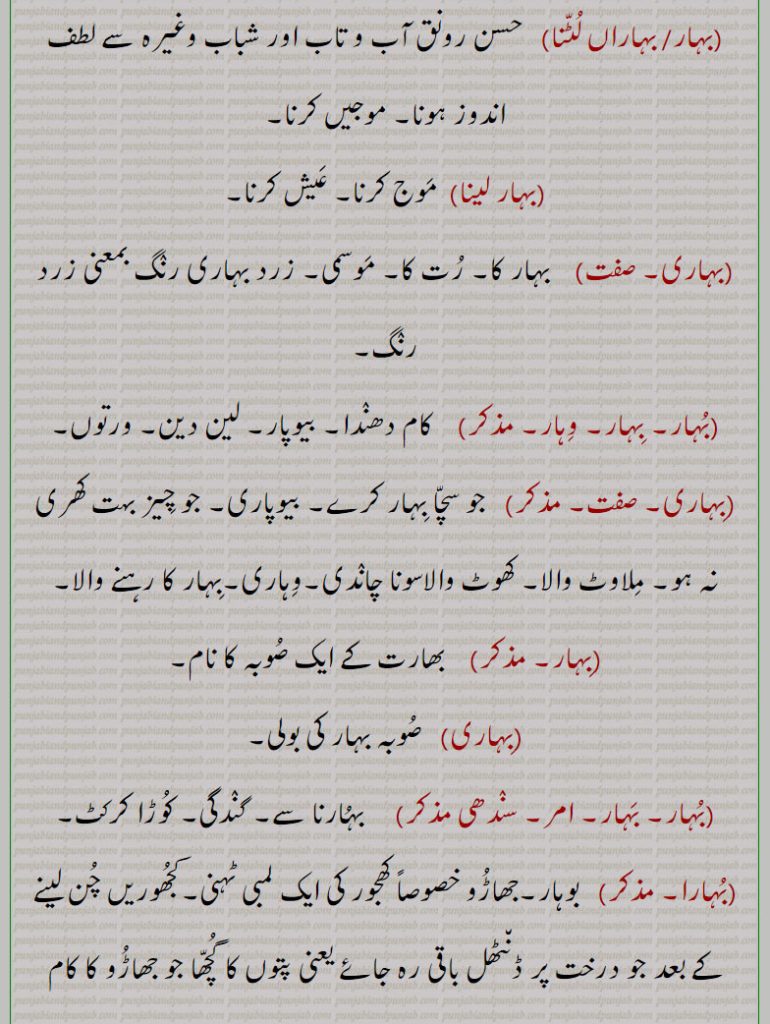 (بہار/ بہاراں لُٹّنا) حسن رونق آب و تاب اور شباب وغیرہ سے لطف
اندوز ہونا۔ موجیں کرنا۔
(بہار لینا) مَوج کرنا۔ عَیش کرنا۔
(بہاری۔ صفت) بہار کا۔ رُت کا۔ مَوسمی۔ زرد بہاری رن٘گ بمعنی زرد
رن٘گ۔
(بُہار۔ بِہار۔ وِہار۔ مذکر) کام دھن٘دا۔ بیوپار۔ لین دین۔ ورتوں۔
(بِہاری۔ صفت۔ مذکر) جو سچّا بِہار کرے۔ بیوپاری۔ جو چِیز بہت کھری
نہ ہو۔ مِلاوٹ والا۔ کھوٹ والاسونا چان٘دی۔وِہاری۔بِہار کا رہنے والا۔
(بِہار۔ مذکر) بھارت کے ایک صُوبہ کا نام۔
(بہاری) صُوبہ بہار کی بولی۔
(بُہار۔ بَہار۔ امر۔ سن٘دھی مذکر) بہُارنا سے۔ گن٘دگی۔ کُوڑا کرکٹ۔
(بُہارا۔ مذکر) بوہار۔جھاڑُو خصوصاً کھجور کی ایک لمبی ٹہنی۔کھُجوریں چُن لینے
کے بعد جو درخت پر ڈن٘ٹھل باقی رہ جائے یعنی پتوں کا گُچھّا جو جھاڑُو کا کام